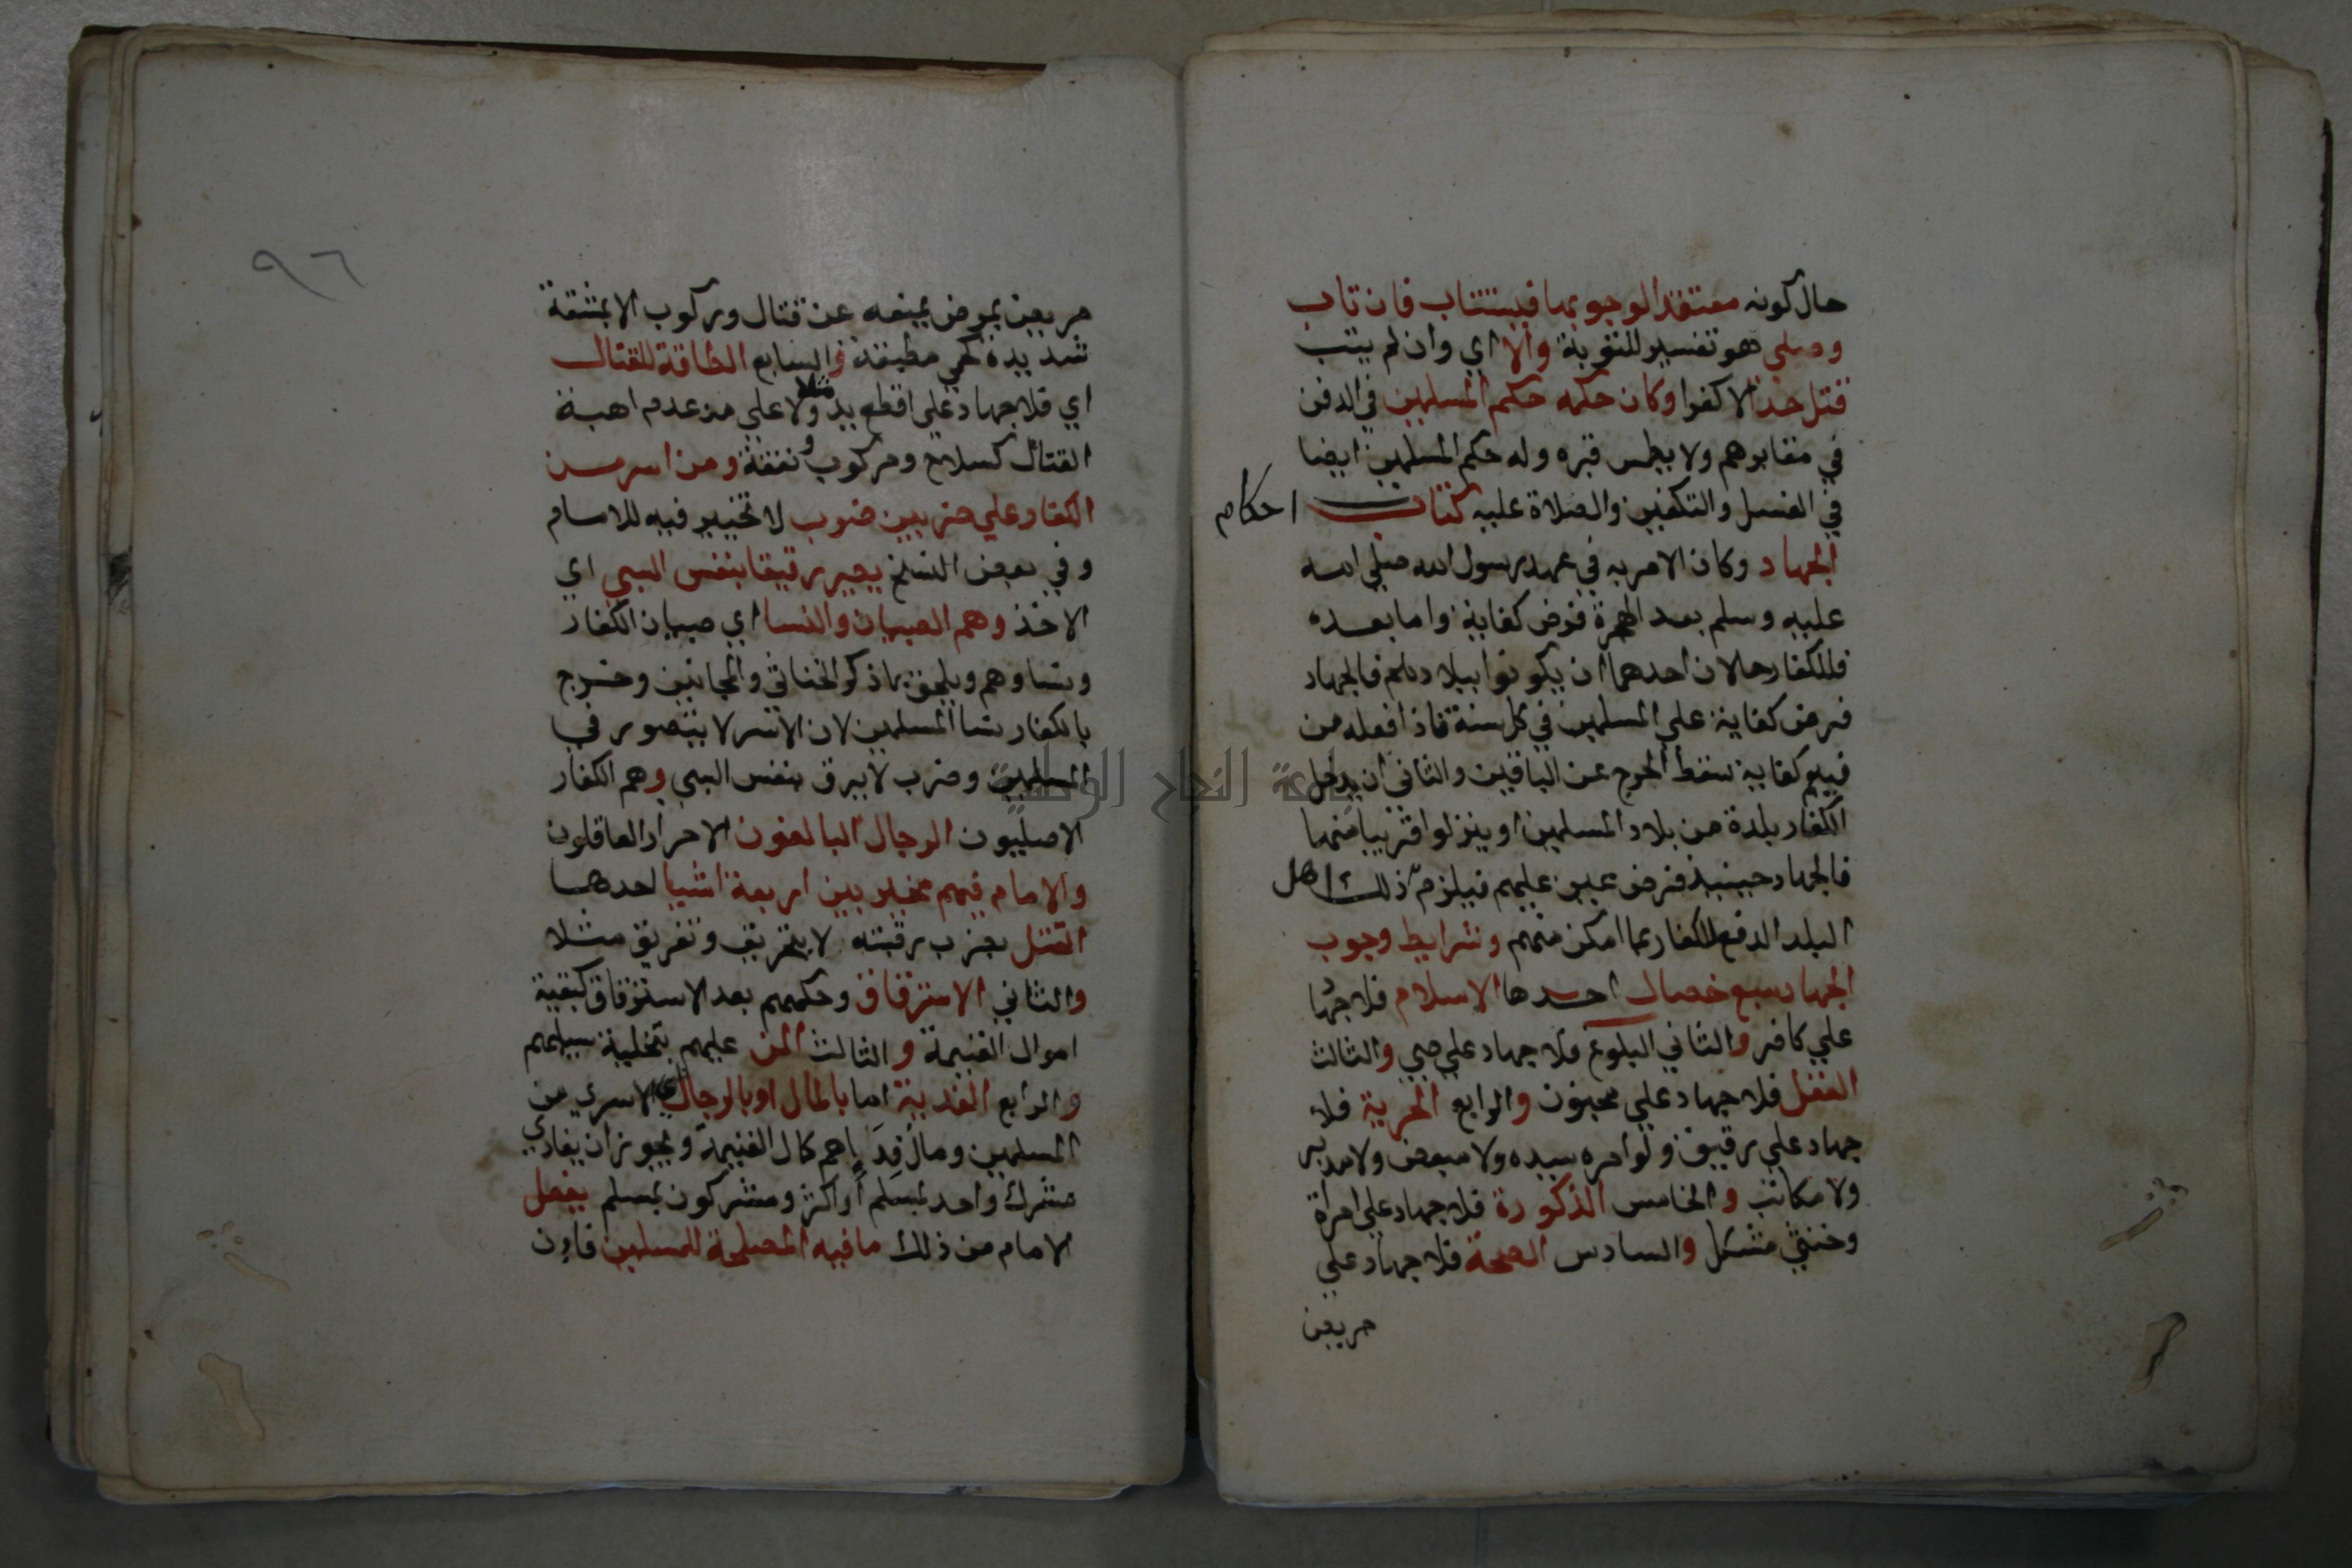 حال كونه معتقدا لوجوبها فيستتاب فان تاب
وصلى هو تفسير للتوبة والا اي وان لم يتب
قتل حدا لا كفرا وكان حكمه حكم المسلمين في الدفن
في مقابرهم ولا يطمس قبره وله حكم المسلمين ايضا
في الغسل والتكفين والصلاة عليه كتاب احكام
الجهاد وكان الامر به في عهد رسول الله صلى الله
عليه وسلم بعد الهجرة فرض كفاية واما بعده
فللكفار حالان احدهما ان يكونوا ببلادهم فالجهاد
فرض كفاية على المسلمين في كل سنة فاذا فعله من
فيهم كفاية سقط الحرج عن الباقين والثاني ان يدخل
الكفار بلدة من بلاد المسلمين او ينزلوا قريبا منها
فالجهاد حينيذ فرض عين عليهم فيلزم ذلك اهل
البلد الدفع للكفار بما امكن منهم وشرايط وجوب
الجهاد سبع خصال احدها الاسلام فلا جهاد
علي كافر والثاني البلوغ فلا جهاد علي صبي والثالث
العقل فلا جهاد علي مجنون والرابع الحرية فلا
جهاد علي رقيق ولو امره سيده ولا مبعض ولا مدبر
ولا مكاتب والخامس الذكورة فلا جهاد علي امرأة
وخنثى مشكل والسادس الصحة فلا جهاد علي
مريض
٩٦
مريض بمرض يمنعه عن قتال وركوب الا بمشقة
شديدة كحمي مطبقة والسابع الطاقة للقتال
اي فلا جهاد علي اقطع يد مثلا ولا علي من عدم اهبة
القتال كسلاح ومركوب ونفقة ومن اسر من
الكفار علي ضربين ضرب لا تخيير فيه للامام
وفي بعض النسخ يصير رقيقا بنفس السبي اي
الاخذ وهم الصبيان والنسا اي صبيان الكفار
ونساوهم ويلحق بما ذكر الخناثي والمجانين وخرج
بالكفار نسا المسلمين لان الاسر لا يتصور في
المسلمين وضرب لا يرق بنفس السبي وهم الكفار
الاصليون الرجال البالغون الاحرار العاقلون
والامام فيهم مخير بين اربعة اشيا احدها
القتل بضرب رقبته لا بتحريق وتغريق مثلا
والثاني الاسترقاق وحكمهم بعد الاسترقاق كبقية
اموال الغنيمة والثالث المن عليهم بتخلية سبيلهم
والرابع الفدية اما بالمال او بالرجال اي الاسري من
المسلمين ومال فداهم كمال الغنيمة ويجوز ان يفادي
مشرك واحد بمسلم او اكثر ومشركون بمسلم يفعل
الامام من ذلك ما فيه المصلحة للمسلمين فان
جامعة النجاح الوطنية